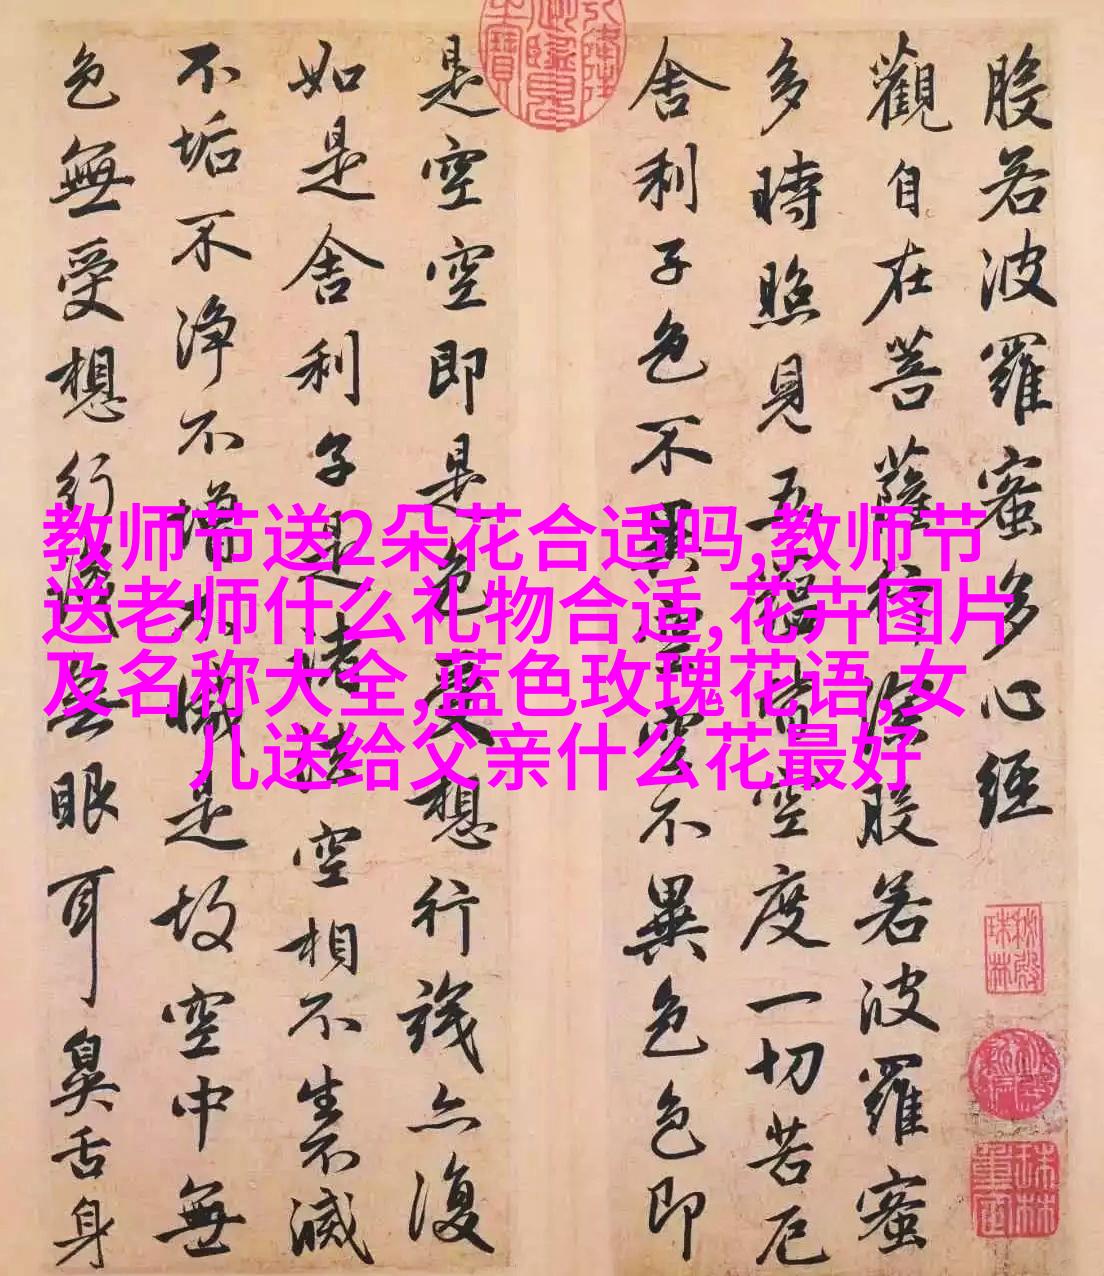 教师节送2朵花合适吗,教师节
送老师什么礼物合适,花卉图片
及名称大全,蓝色玫瑰花语,女
儿送给父亲什么花最好
般若波羅蜜多心經
觀自在菩薩行深般若波羅蜜
多時照見五蘊皆空度一切苦厄
舍利子色不異空空不異色色即
是空空即是色受想行識亦復
如是舍利子是諸法空相不生不滅
不垢不淨不增不減是故空中無
色無受想行識無眼耳鼻舌身
秘殿
珠林